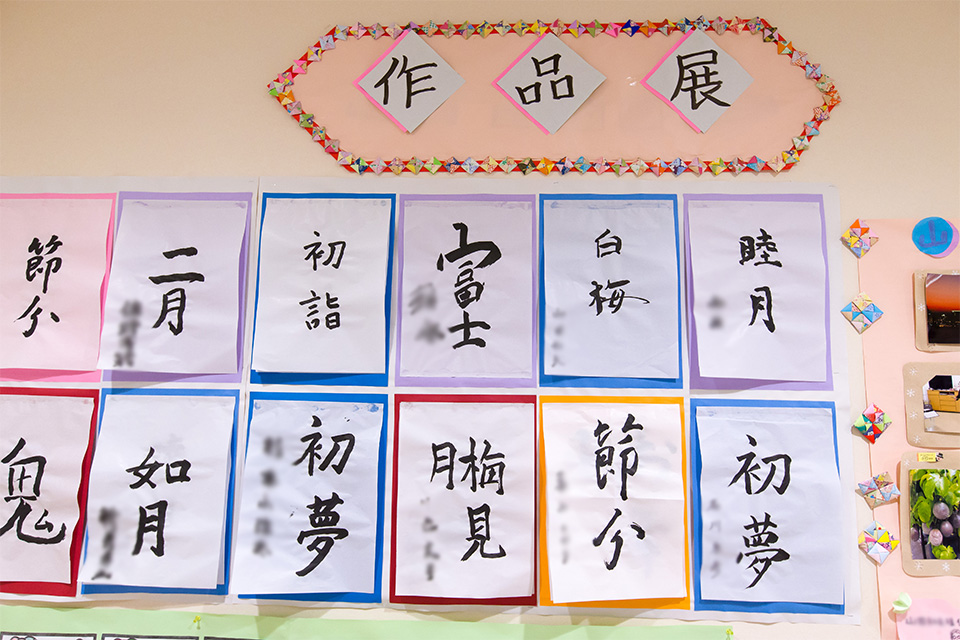 作品展
節分
二月
初詣
富士
白梅
睦月
鬼
如月
初夢
梅見月
節分
初夢
山